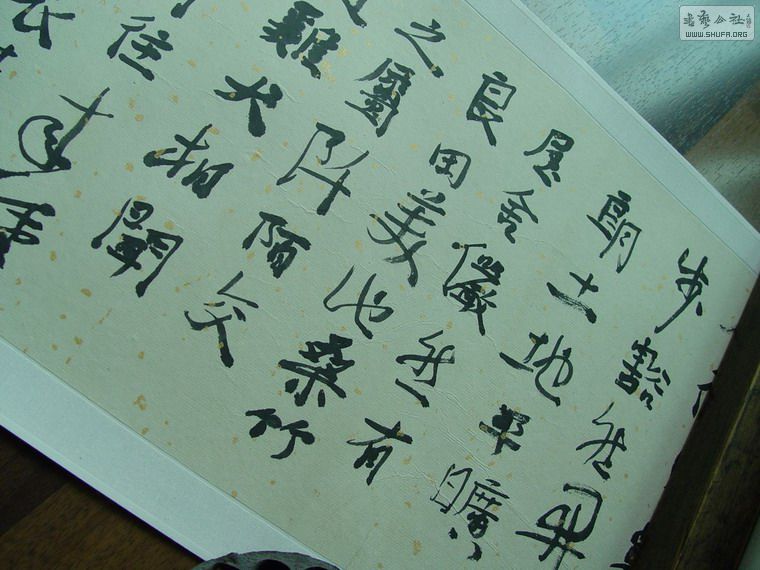 書藝公社
WWW.SHUFA.ORG
步豁然開
朗土地平曠
屋舍儼然有
良田美池桑竹
之屬阡陌交
雞犬相聞
往來